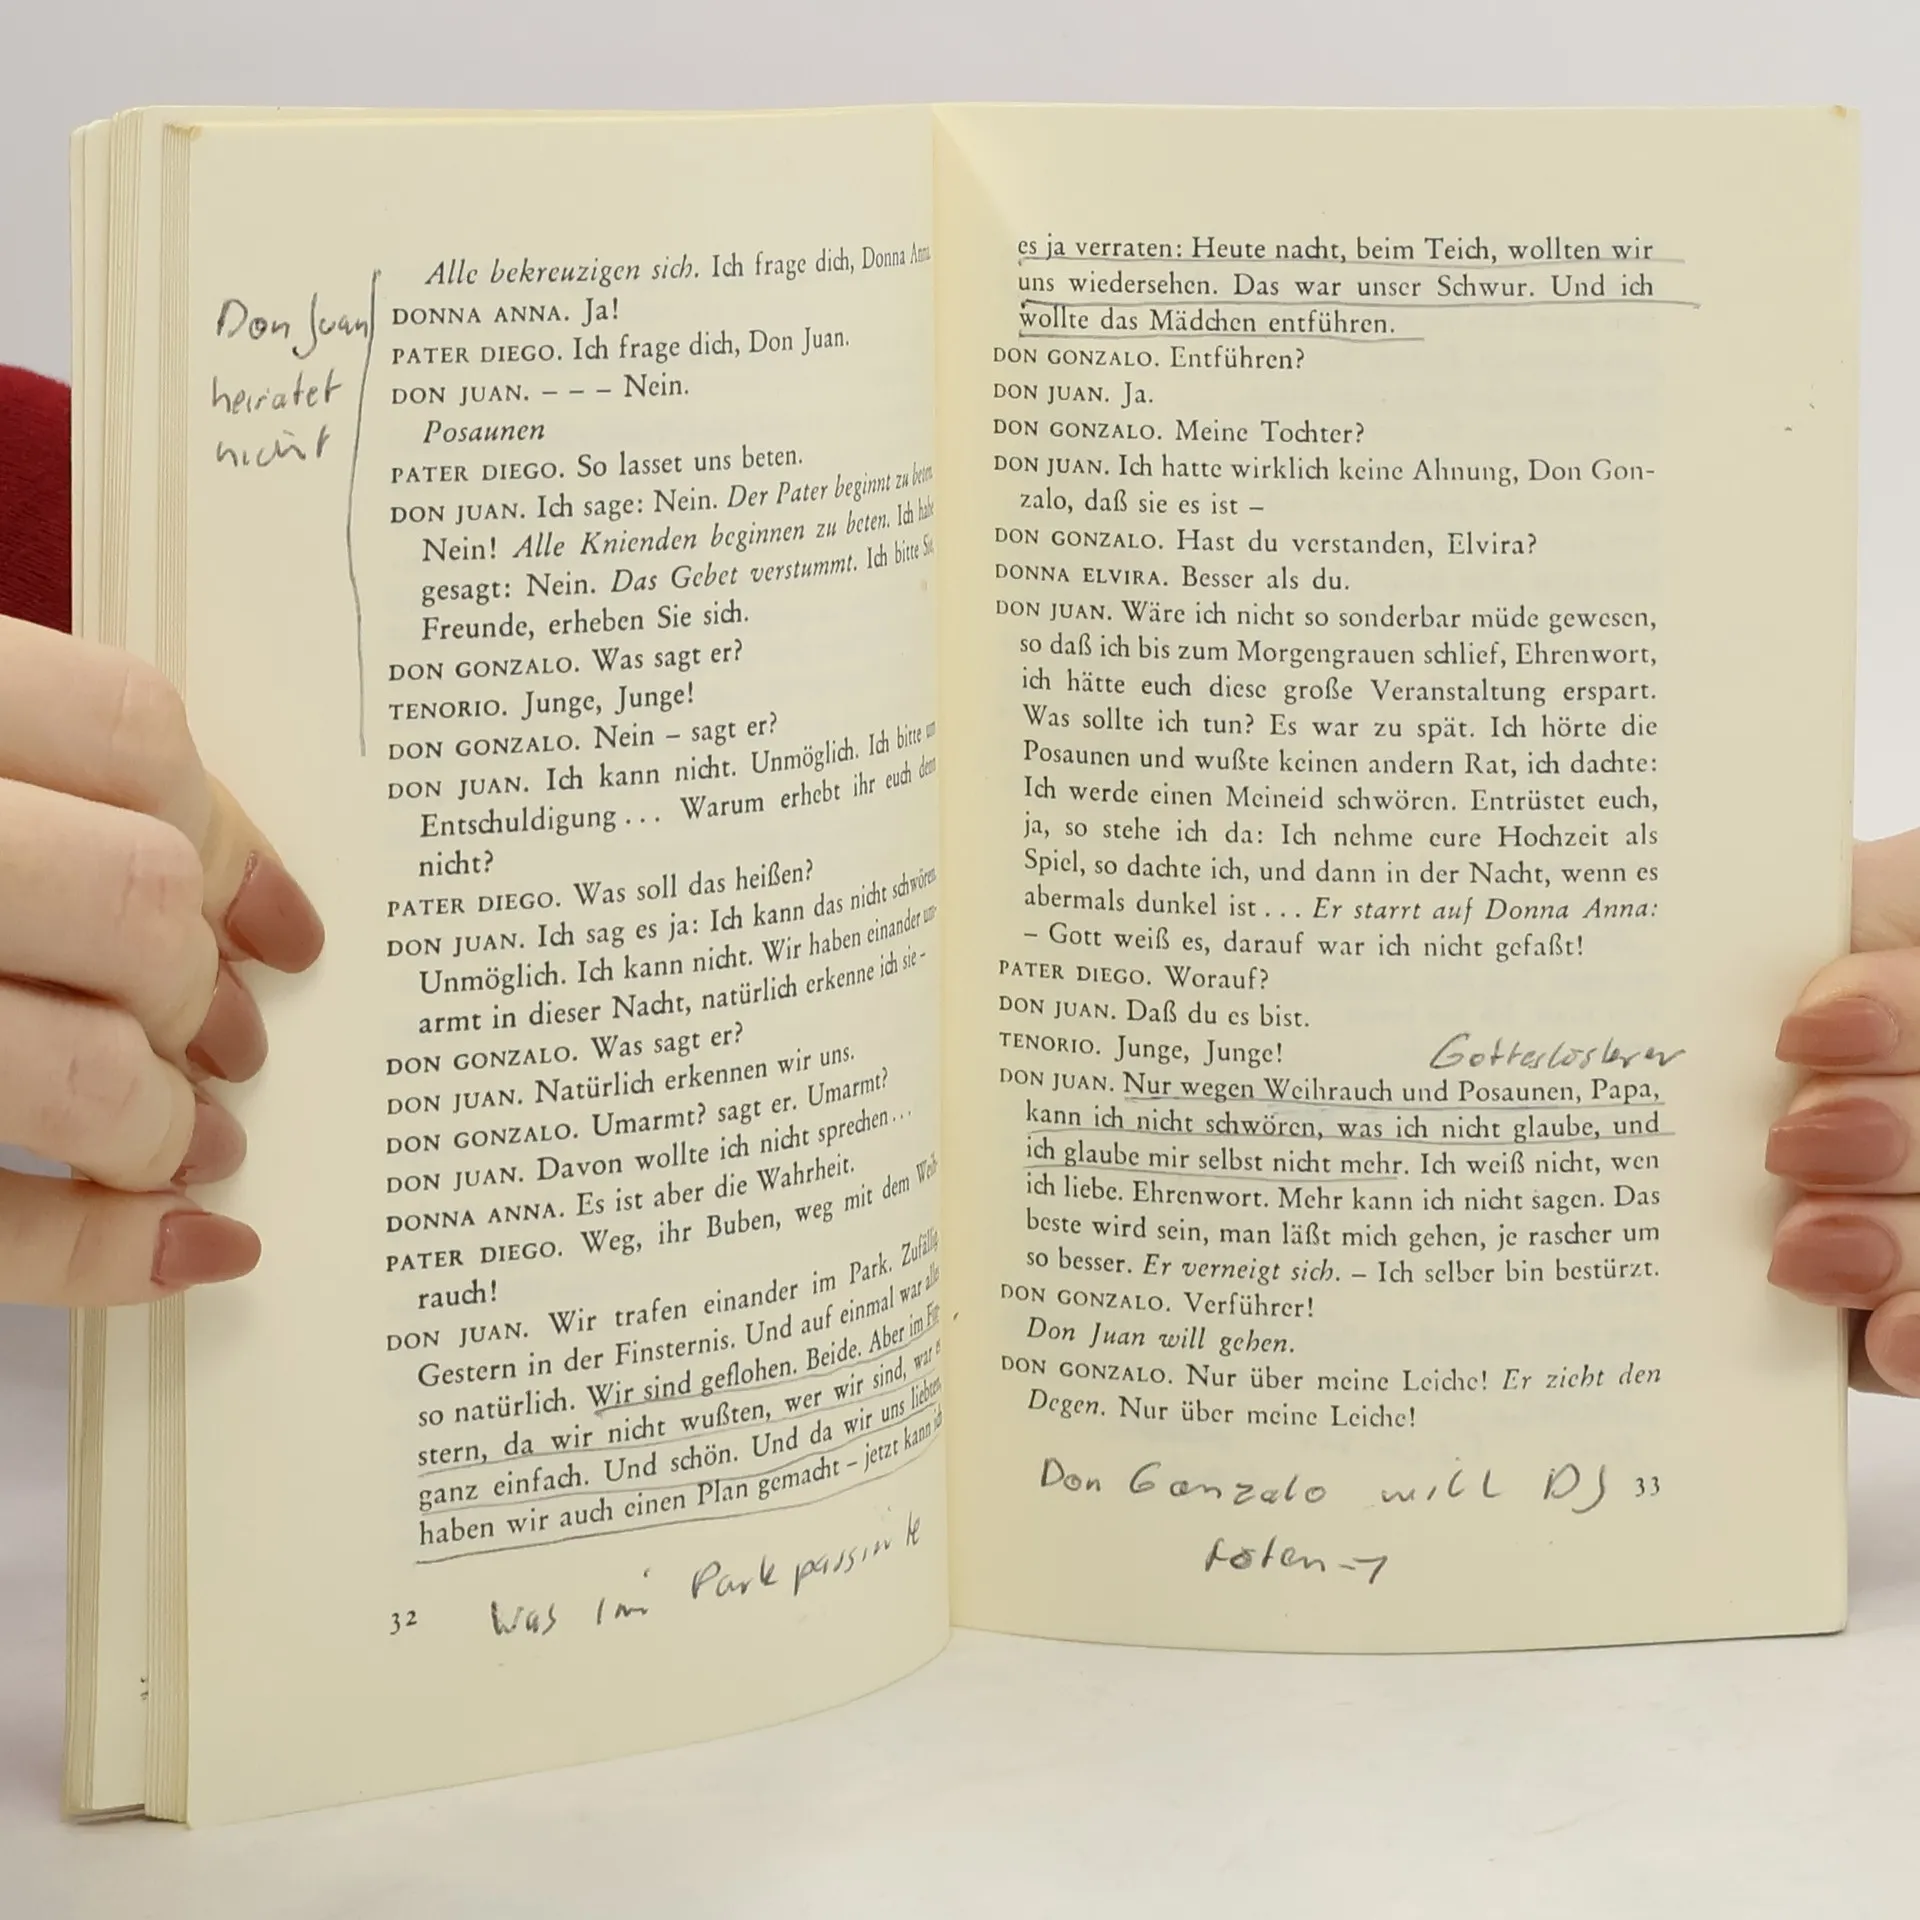 Alle bekreuzigen sich. Ich frage dich, Donna Anna
DONNA ANNA. Ja!
PATER DIEGO. Ich frage dich, Don Juan.
DON JUAN. – – – Nein.
Posaunen
PATER DIEGO. So lasset uns beten.
DON JUAN. Ich sage: Nein. Der Pater beginnt zu beten.
Nein! Alle Knienden beginnen zu beten. Ich habe
gesagt: Nein. Das Gebet verstummt. Ich bitte Sie,
Freunde, erheben Sie sich.
DON GONZALO. Was sagt er?
TENORIO. Junge, Junge!
DON GONZALO. Nein – sagt er?
DON JUAN. Ich kann nicht. Unmöglich. Ich bitte um
Entschuldigung ... Warum erhebt ihr euch denn
nicht?
PATER DIEGO. Was soll das heißen?
DON JUAN. Ich sag es ja: Ich kann das nicht schwören.
Unmöglich. Ich kann nicht. Wir haben einander um-
armt in dieser Nacht, natürlich erkenne ich sie –
DON GONZALO. Was sagt er?
DON JUAN. Natürlich erkennen wir uns.
DON GONZALO. Umarmt? sagt er. Umarmt?
DON JUAN. Davon wollte ich nicht sprechen...
DONNA ANNA. Es ist aber die Wahrheit.
PATER DIEGO. Weg, ihr Buben, weg mit dem Weih-
rauch!
DON JUAN. Wir trafen einander im Park. Zufällig.
Gestern in der Finsternis. Und auf einmal war alles
so natürlich. Wir sind geflohen. Beide. Aber im Fin-
stern, da wir nicht wußten, wer wir sind, war es
ganz einfach. Und schön. Und da wir uns liebten,
haben wir auch einen Plan gemacht – jetzt kann ich
32
Don Juan
heiratet
nicht
Was im Park passierte
es ja verraten: Heute nacht, beim Teich, wollten wir
uns wiedersehen. Das war unser Schwur. Und ich
wollte das Mädchen entführen.
DON GONZALO. Entführen?
DON JUAN. Ja.
DON GONZALO. Meine Tochter?
DON JUAN. Ich hatte wirklich keine Ahnung, Don Gon-
zalo, daß sie es ist –
DON GONZALO. Hast du verstanden, Elvira?
DONNA ELVIRA. Besser als du.
DON JUAN. Wäre ich nicht so sonderbar müde gewesen,
so daß ich bis zum Morgengrauen schlief, Ehrenwort,
ich hätte euch diese große Veranstaltung erspart.
Was sollte ich tun? Es war zu spät. Ich hörte die
Posaunen und wußte keinen andern Rat, ich dachte:
Ich werde einen Meineid schwören. Entrüstet euch,
ja, so stehe ich da: Ich nehme eure Hochzeit als
Spiel, so dachte ich, und dann in der Nacht, wenn es
abermals dunkel ist ... Er starrt auf Donna Anna:
– Gott weiß es, darauf war ich nicht gefaßt!
PATER DIEGO. Worauf?
DON JUAN. Daß du es bist.
TENORIO. Junge, Junge!
Gotteslästerer
DON JUAN. Nur wegen Weihrauch und Posaunen, Papa,
kann ich nicht schwören, was ich nicht glaube, und
ich glaube mir selbst nicht mehr. Ich weiß nicht, wen
ich liebe. Ehrenwort. Mehr kann ich nicht sagen. Das
beste wird sein, man läßt mich gehen, je rascher um
so besser. Er verneigt sich. – Ich selber bin bestürzt.
DON GONZALO. Verführer!
Don Juan will gehen.
DON GONZALO. Nur über meine Leiche! Er zieht den
Degen. Nur über meine Leiche!
Don Gonzalo will DJ
töten
33